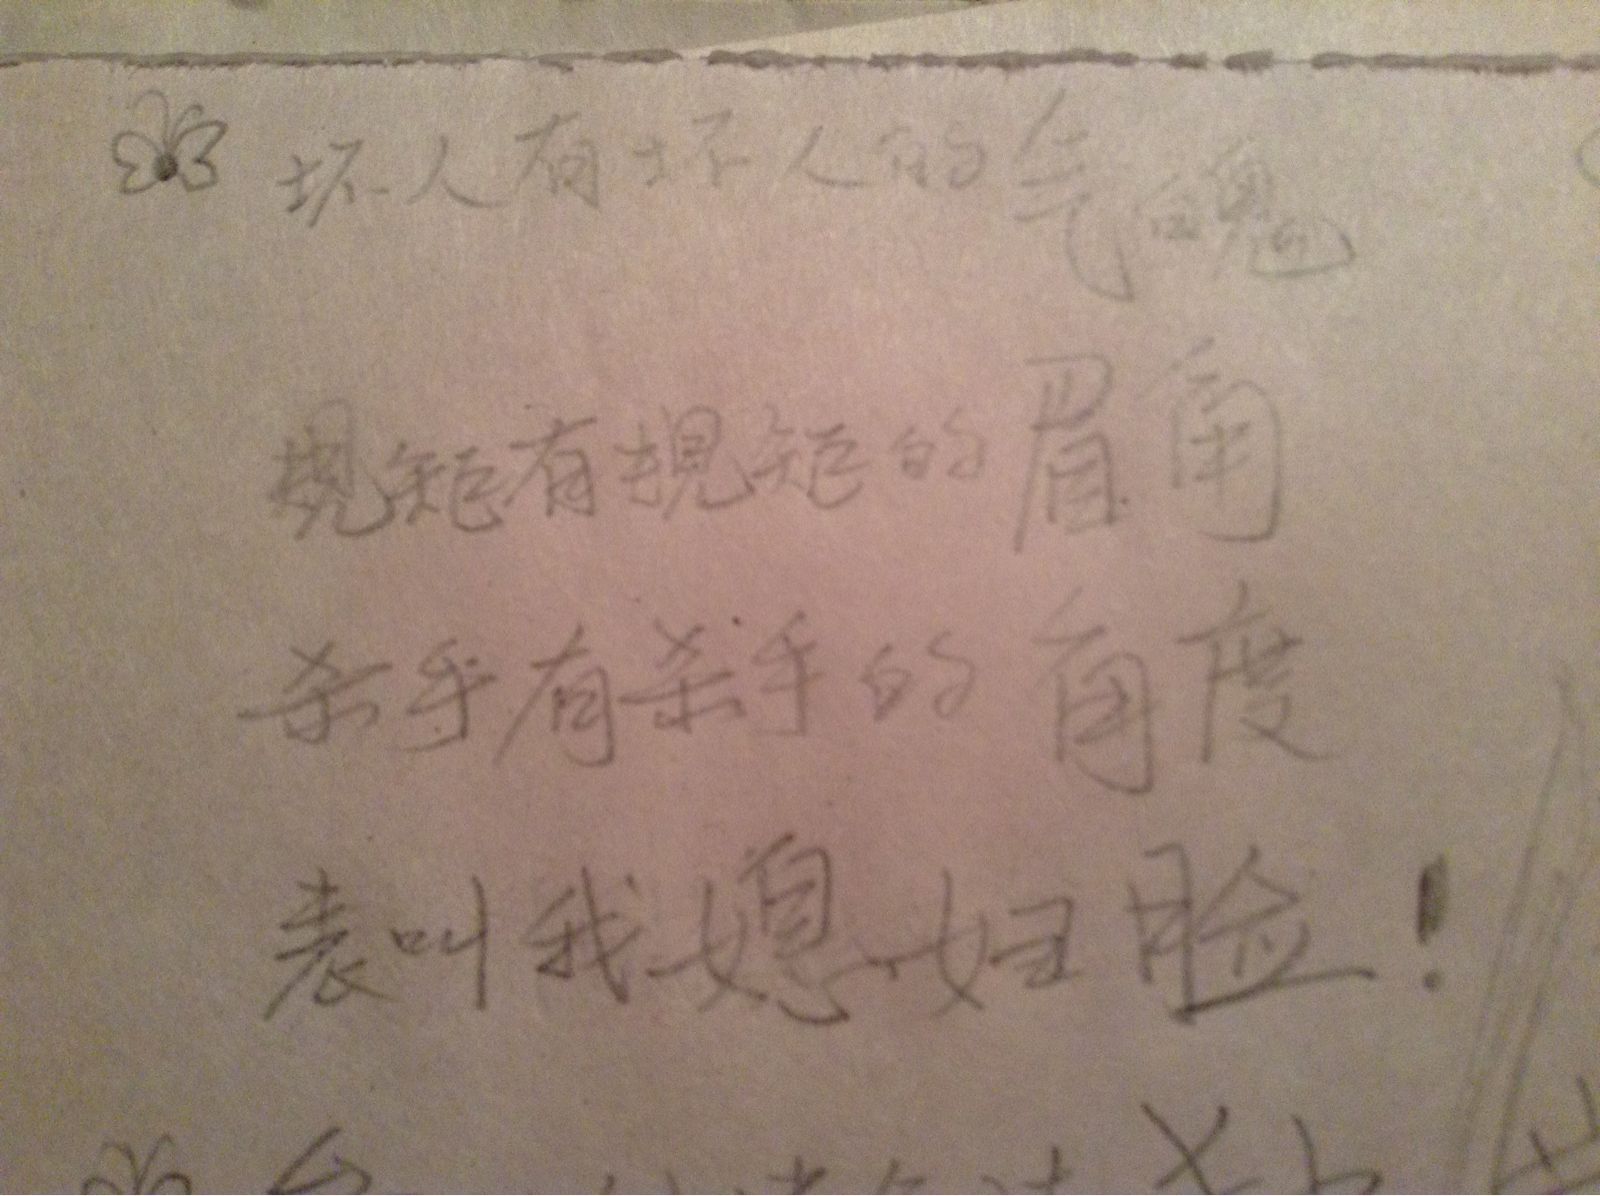 坏人有坏人的气魄
规矩有规矩的眉角
杀手有杀手的角度
表叫我媳妇脸!